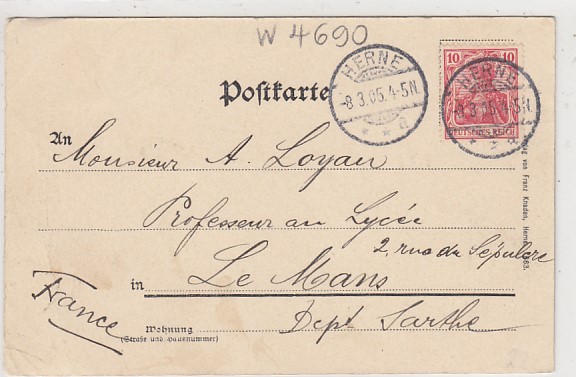 W 4690
Postkarte
HERNE
-8.3.05.4-5N.
* * a
10 10
DEUTSCHES REICH
HERNE
-8.3.05.4-5N.
* * a
An
Monsieur A. Loyau
Professeur au Lycée
2, rue du Sépulcre
in Le Mans
France
Dept Sarthe
Wohnung
(Straße und Hausnummer)
von Franz Knaden, Herne